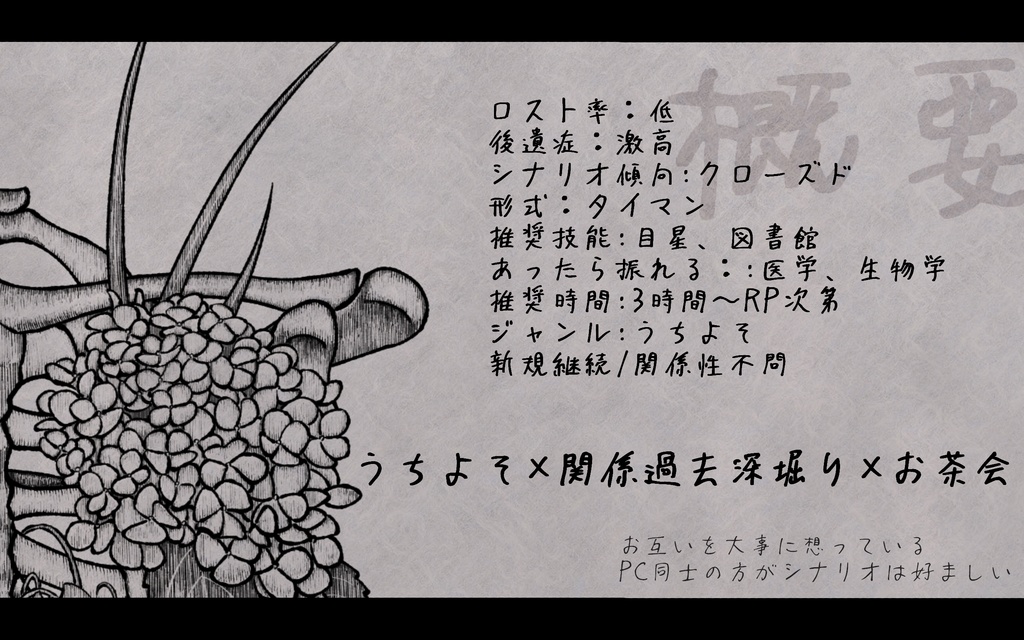 概要
ロスト率：低
後遺症：激高
シナリオ傾向:クローズド
形式：タイマン
推奨技能:目星、図書館
あったら振れる：:医学、生物学
推奨時間:3時間～RP次第
ジャンル:うちよそ
新規継続/関係性不問
うちよそ×関係過去深堀り×お茶会
お互いを大事に想っている
PC同士の方がシナリオは好ましい